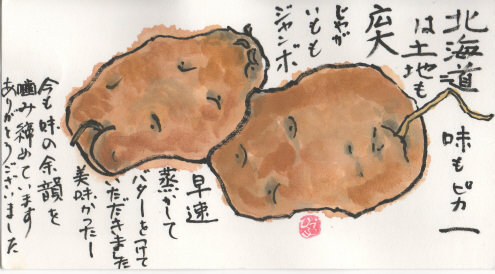 北海道
は土地も
広大
じゃが
いもも
ジャンボ
味もピカ一
早速
蒸かして
バターをつけて
いただきました
美味かったー
今も味の余韻を
噛み締めています
ありがとうございました